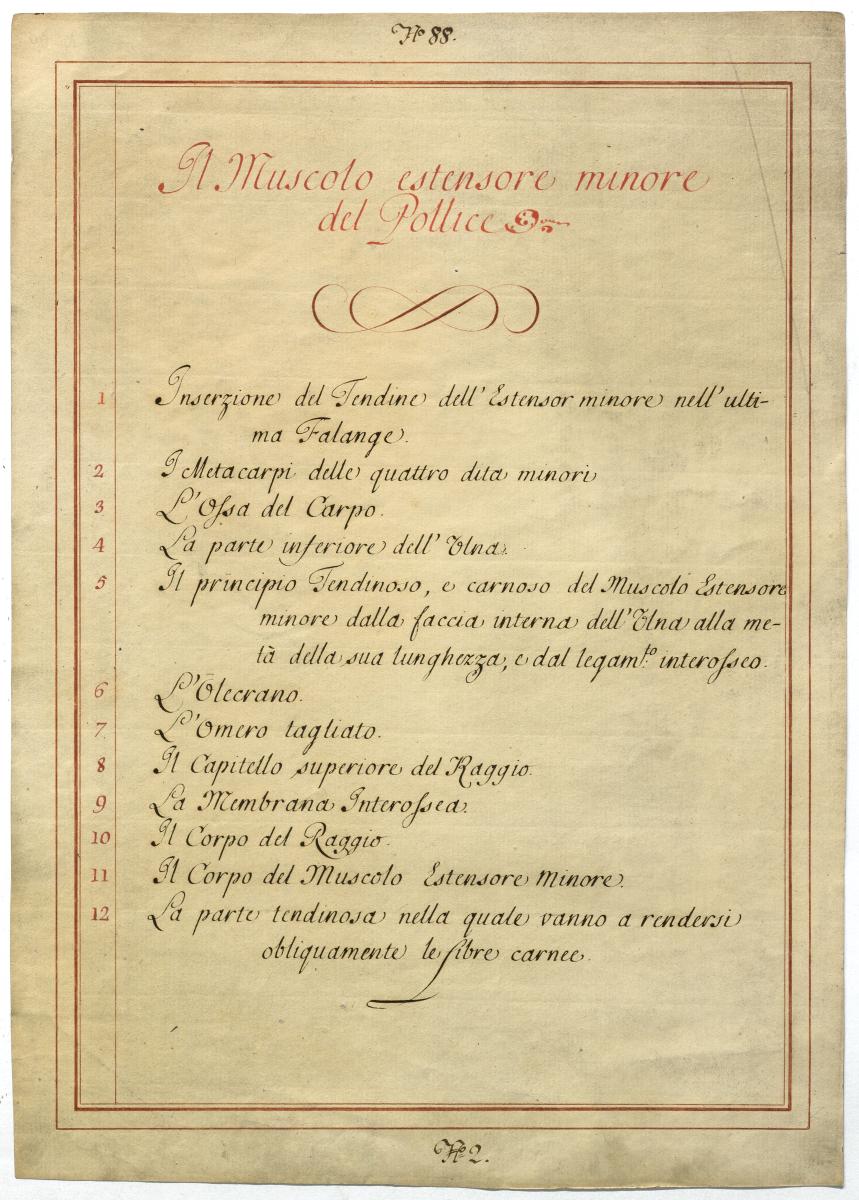 No 88.
Il Muscolo estensore minore
del Pollice
1 Inserzione del Tendine dell'Estensor minore nell'ulti-
ma Falange.
2 I Metacarpi delle quattro dita minori
3 L'Ossa del Carpo.
4 La parte inferiore dell'Ulna.
5 Il principio Tendinoso, e carnoso del Muscolo Estensore
minore dalla faccia interna dell'Ulna alla me-
tà della sua lunghezza, e dal legam.to interosseo.
6 L'Olecrano.
7 L'Omero tagliato.
8 Il Capitello superiore del Raggio.
9 La Membrana Interossea.
10 Il Corpo del Raggio.
11 Il Corpo del Muscolo Estensore Minore.
12 La parte tendinosa nella quale vanno a rendersi
obliquamente le fibre carnee.
No 2.